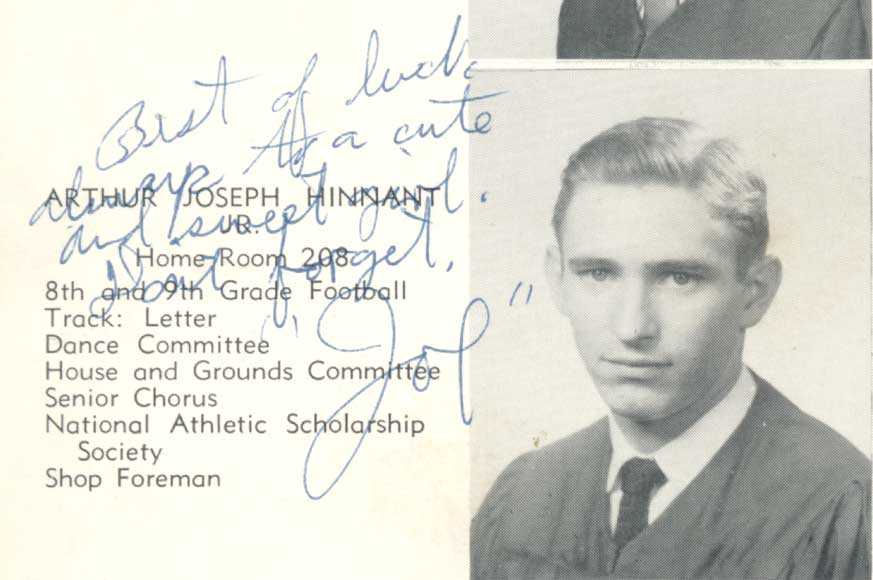 Best of luck
always to a cute
and sweet girl.
Dont forget.
"Joe"
ARTHUR JOSEPH HINNANT
JR.
Home Room 208
8th and 9th Grade Football
Track: Letter
Dance Committee
House and Grounds Committee
Senior Chorus
National Athletic Scholarship
Society
Shop Foreman